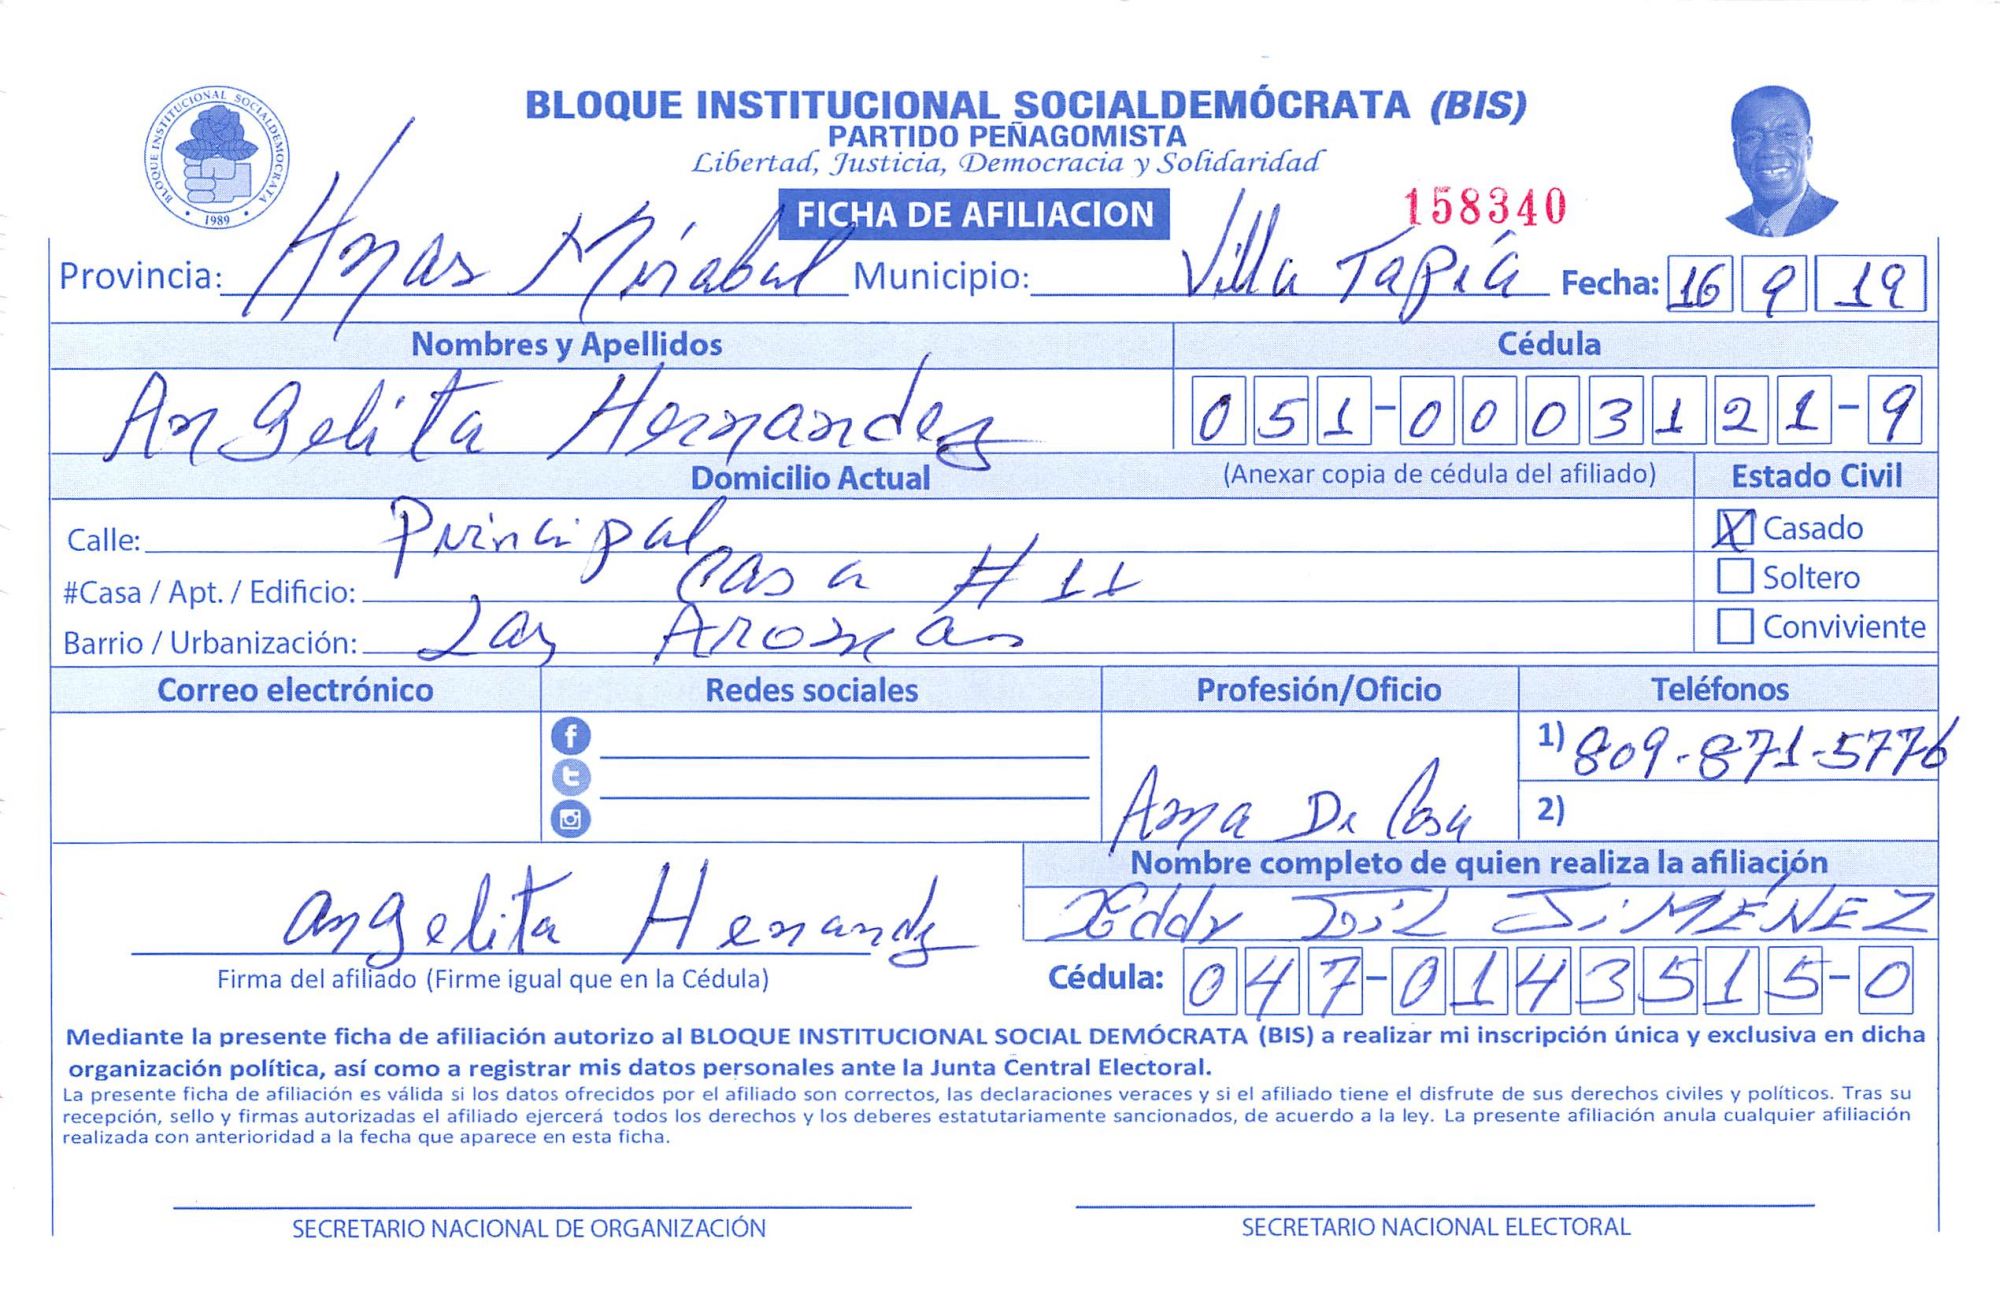 BLOQUE INSTITUCIONAL SOCIALDEMOCRATA
1989
BLOQUE INSTITUCIONAL SOCIALDEMÓCRATA (BIS)
PARTIDO PEÑAGOMISTA
Libertad, Justicia, Democracia y Solidaridad
FICHA DE AFILIACION 158340
Provincia: Hnas Mirabal Municipio: Villa Tapia Fecha: 16 9 19
Nombres y Apellidos Cédula
Angelita Hernandez 051-0003121-9
Domicilio Actual (Anexar copia de cédula del afiliado) Estado Civil
Calle: Principal X Casado
#Casa / Apt. / Edificio: Casa # 11 Soltero
Barrio / Urbanización: Las Aromas Conviviente
Correo electrónico Redes sociales Profesión/Oficio Teléfonos
1) 809-871-5776
Ama De Casa 2)
Nombre completo de quien realiza la afiliación
Angelita Henandz Eddy JiMÉNEZ
Firma del afiliado (Firme igual que en la Cédula) Cédula: 047-0143515-0
Mediante la presente ficha de afiliación autorizo al BLOQUE INSTITUCIONAL SOCIAL DEMÓCRATA (BIS) a realizar mi inscripción única y exclusiva en dicha
organización política, así como a registrar mis datos personales ante la Junta Central Electoral.
La presente ficha de afiliación es válida si los datos ofrecidos por el afiliado son correctos, las declaraciones veraces y si el afiliado tiene el disfrute de sus derechos civiles y políticos. Tras su
recepción, sello y firmas autorizadas el afiliado ejercerá todos los derechos y los deberes estatutariamente sancionados, de acuerdo a la ley. La presente afiliación anula cualquier afiliación
realizada con anterioridad a la fecha que aparece en esta ficha.
SECRETARIO NACIONAL DE ORGANIZACIÓN SECRETARIO NACIONAL ELECTORAL